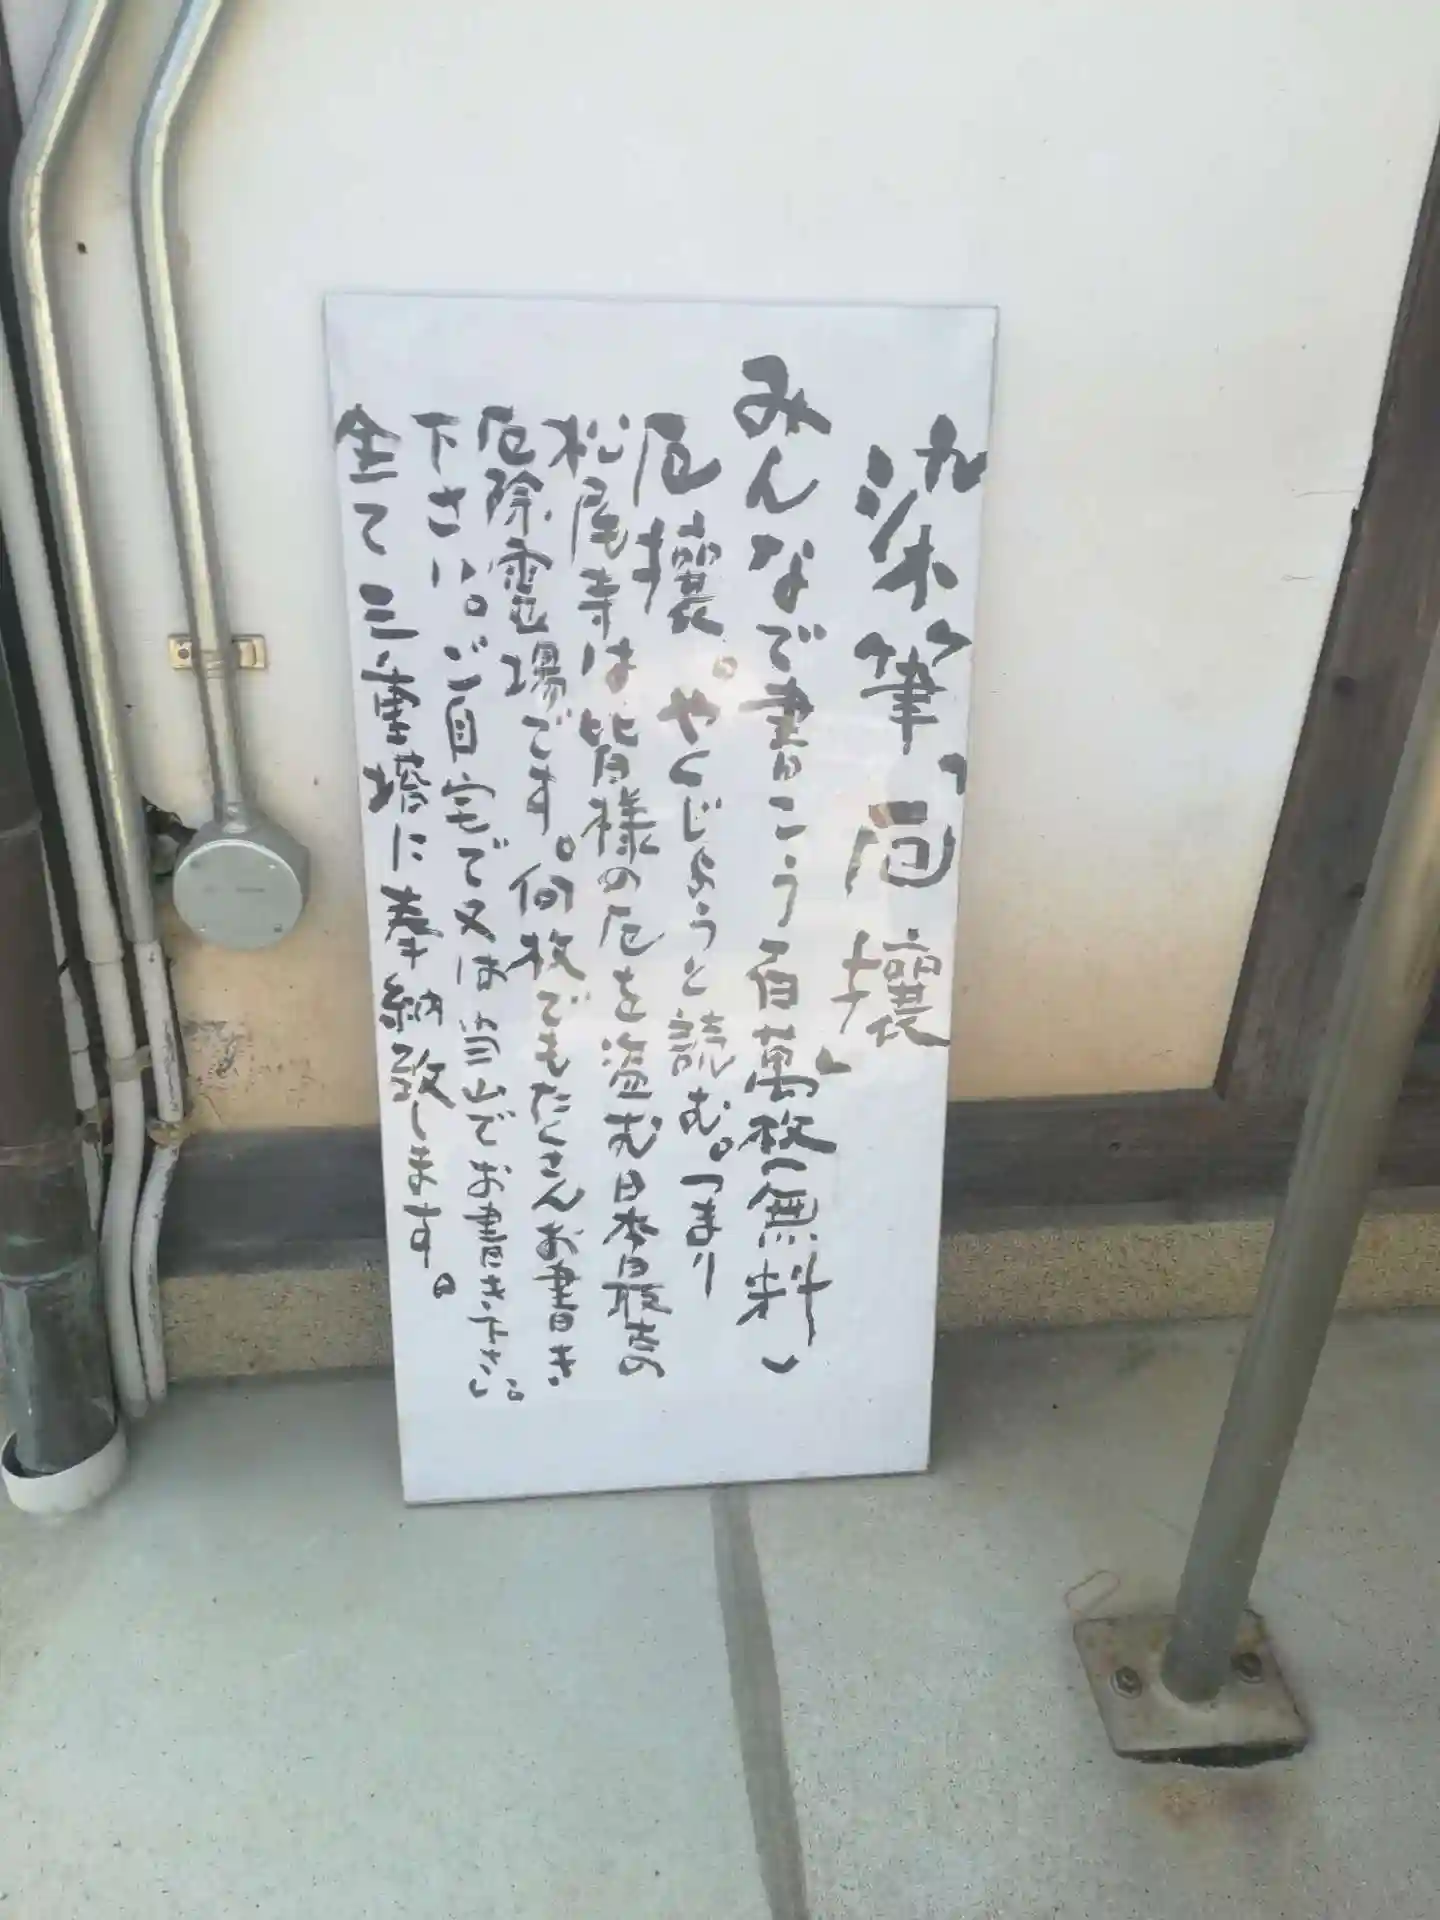 染筆「厄攘」
みんなで書こう百萬枚(無料)
厄攘。やくじょうと読む。つまり
松尾寺は皆様の厄を盗む日本最古の
厄除霊場です。何枚でもたくさんお書き
下さい。ご自宅で又は当山でお書き下さい。
全て三重塔に奉納致します。